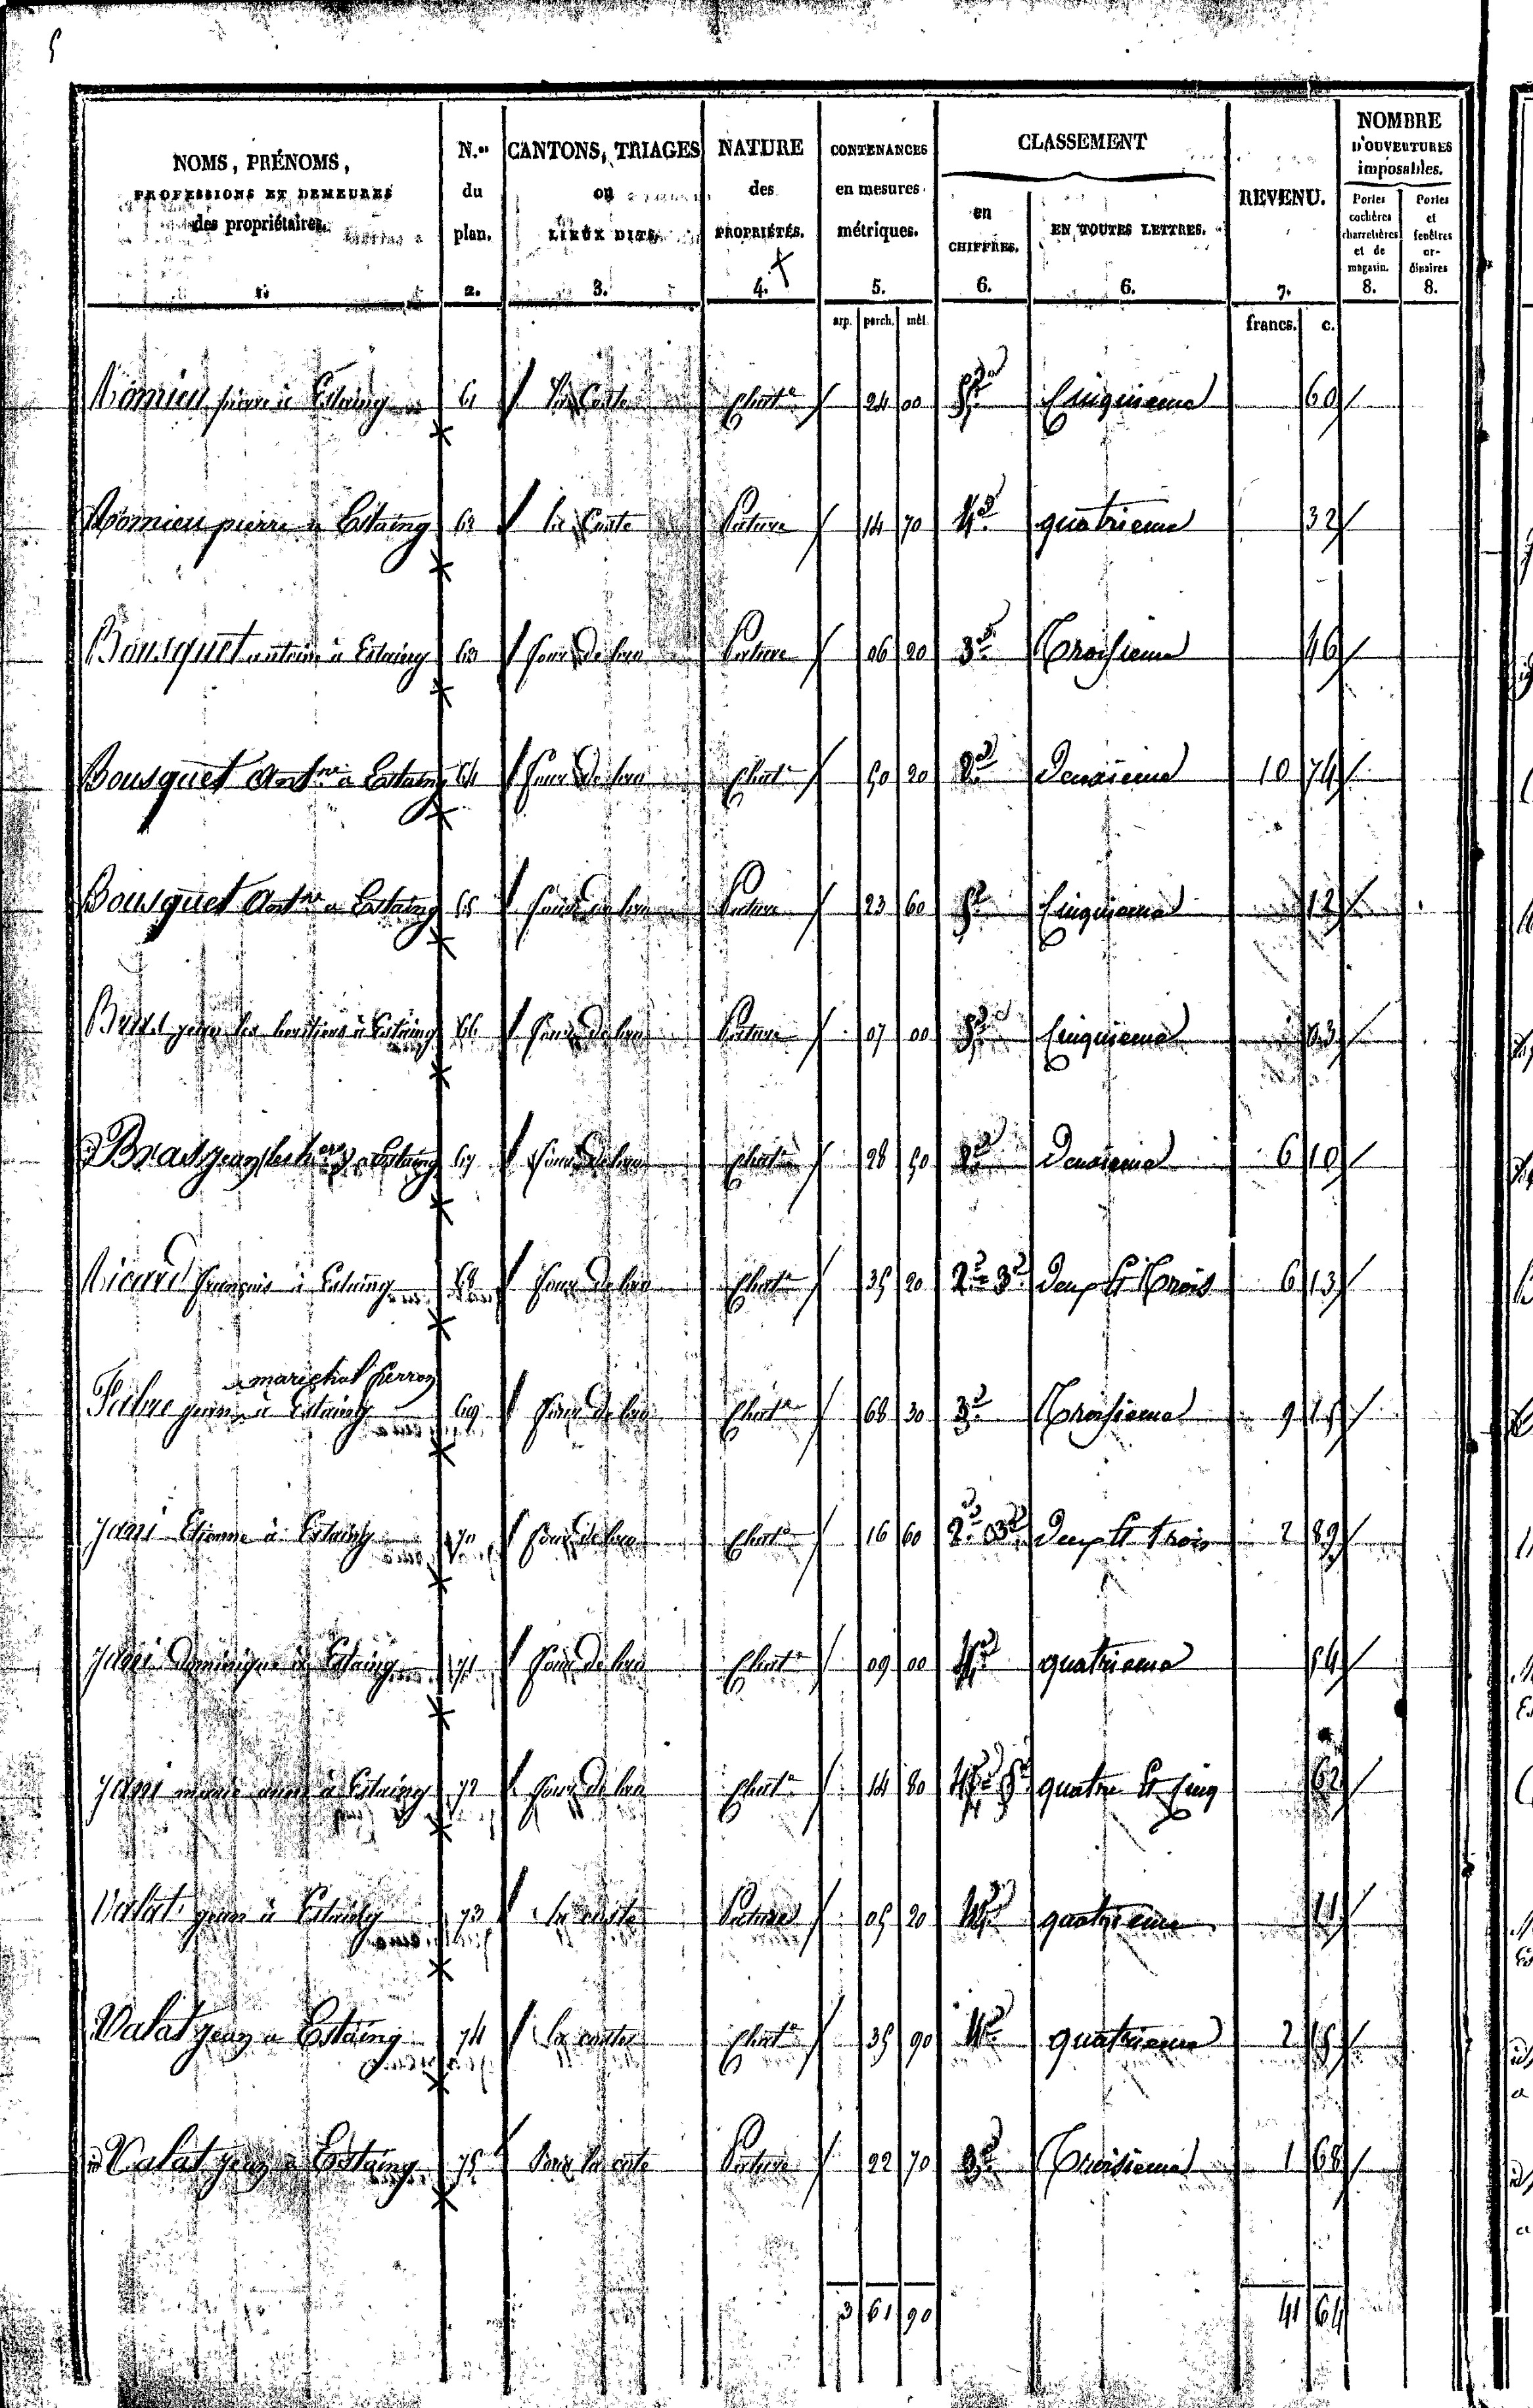 5
NOMS, PRÉNOMS, PROFESSIONS ET DEMEURES des propriétaires. 1.
N.os du plan. 2.
CANTONS, TRIAGES ou LIEUX DITS. 3.
NATURE des PROPRIÉTÉS. 4.
CONTENANCES en mesures métriques. 5.
CLASSEMENT
en CHIFFRES. 6.
EN TOUTES LETTRES. 6.
REVENU. 7.
NOMBRE D'OUVERTURES imposables.
Portes cochères charretières et de magasin. 8.
Portes et fenêtres ordinaires 8.
arp. perch. mèt. francs. c.
Romieu pierre à Estaing 61 La Coste Chat.e 24 00 5e Cinquieme 60
Romieu pierre à Estaing 62 la Coste Pature 14 70 4e quatrieme 32
Bousquet antoine à Estaing 63 Pature 06 20 3e Troisieme 46
Bousquet Ant.ne à Estaing 64 Chat.e 50 20 2e Deuxieme 10 74
Bousquet Ant.ne à Estaing 65 Pature 23 60 5e Cinquieme 12
jean les heritiers à Estaing 66 Pature 07 00 5e Cinquieme 03
jean à Estaing 67 Chat.e 28 50 2e Deuxieme 6 10
Ricard François à Estaing 68 Chat.e 35 20 2e 3e Deux Et Trois 6 13
marechal ferron
Fabre jean à Estaing 69 Chat.e 68 30 3e Troisieme 9 15
Etienne à Estaing 70 Chat.e 16 60 2e 3e Deux Et trois 2 89
Dominique à Estaing 71 Chat.e 09 00 4e quatrieme 54
marie anne à Estaing 72 Chat.e 14 80 4e 5e quatre Et Cinq 62
Valat jean à Estaing 73 la coste Pature 05 20 4e quatrieme 11
Valat jean à Estaing 74 la coste Chat.e 35 90 4e quatrieme 2 15
Valat jean à Estaing 75 la coste Pature 22 70 3e Troisieme 1 68
3 61 90 41 64